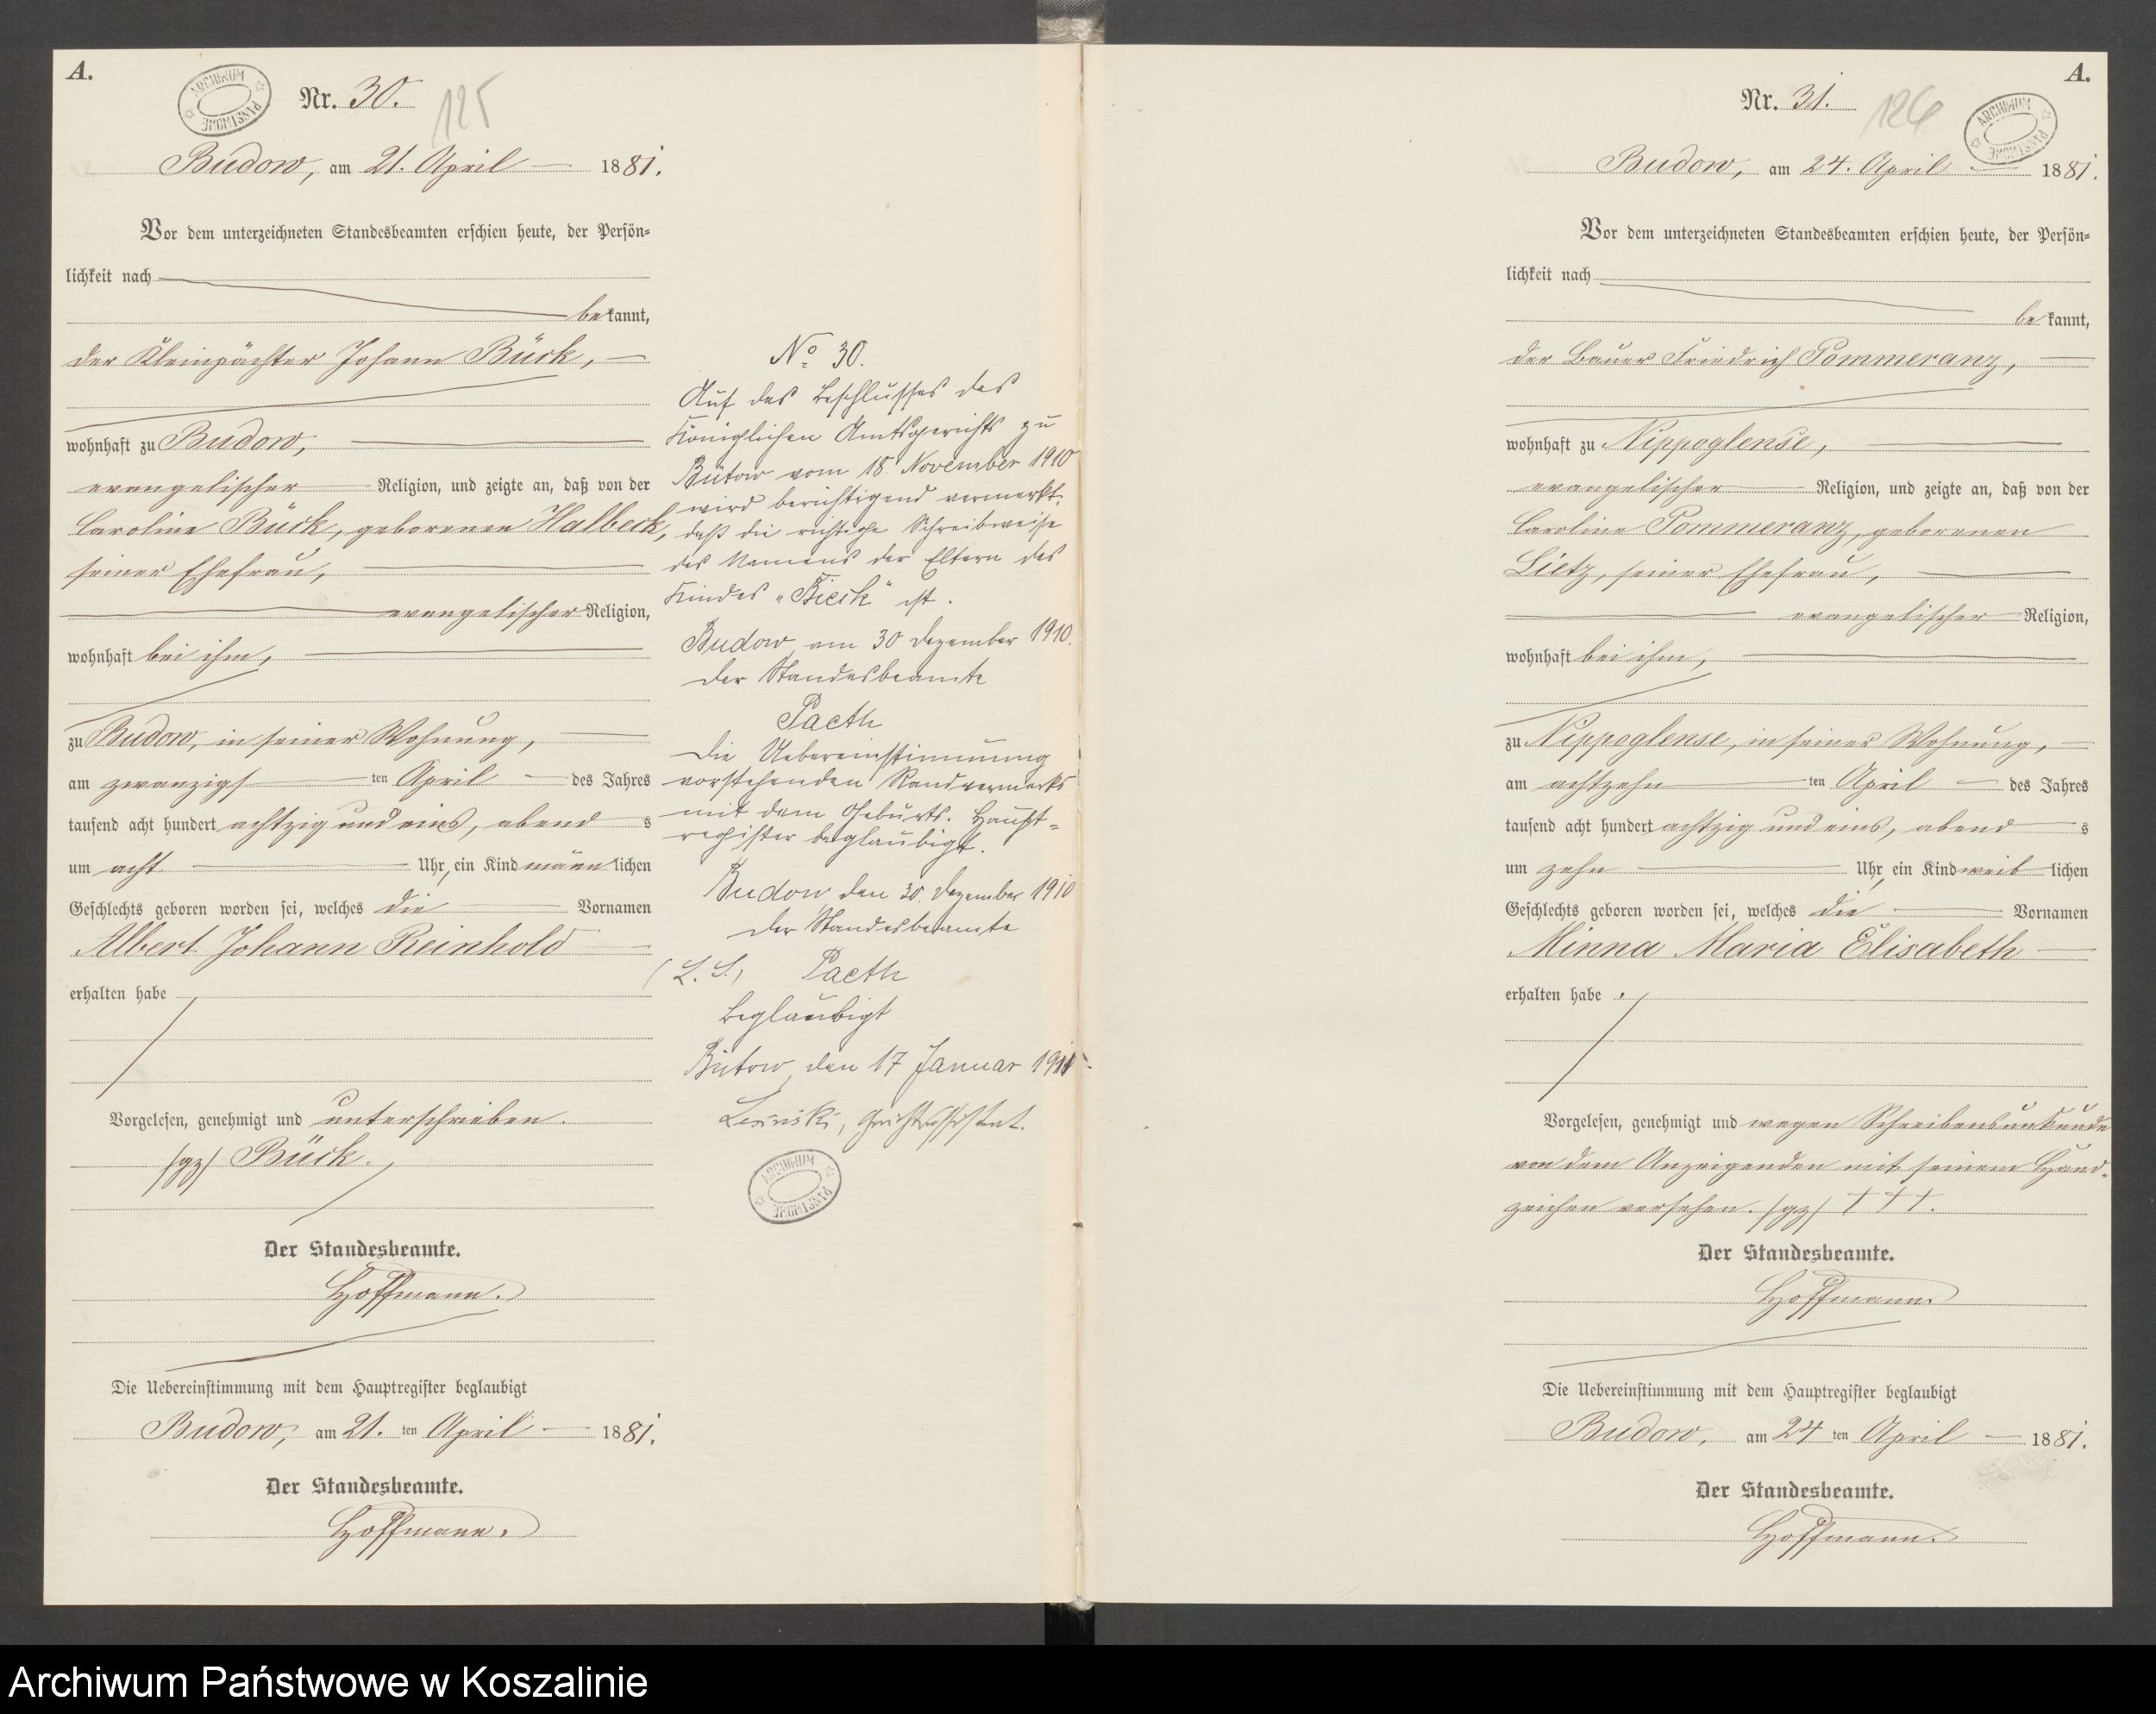 A.
ARCHIWUM PAŃSTWOWE
Nr. 30.
125
Budow, am 21. April 1881.
Vor dem unterzeichneten Standesbeamten erschien heute, der Persön-
lichkeit nach
bekannt,
der Kleinpächter Johann Bück,
wohnhaft zu Budow,
evangelischer Religion, und zeigte an, daß von der
Caroline Bück, geborenen Halbeck,
seiner Ehefrau,
evangelischer Religion,
wohnhaft bei ihm,
zu Budow, in seiner Wohnung,
am zwanzigsten April des Jahres
tausend acht hundert achtzig und eins, abends
um acht Uhr, ein Kind männlichen
Geschlechts geboren worden sei, welches die Vornamen
Albert Johann Reinhold
erhalten habe
Vorgelesen, genehmigt und unterschrieben.
/gz/ Bück.
Der Standesbeamte.
Hoffmann.
Die Uebereinstimmung mit dem Hauptregister beglaubigt
Budow, am 21. ten April 1881.
Der Standesbeamte.
Hoffmann.
No 30.
Auf des Beschlusses des
Königlichen Amtsgerichts zu
Bütow vom 18 November 1910
wird berichtigend vermerkt,
daß die richtige Schreibweise
des Namens der Eltern des
Kindes „Bieck“ ist.
Budow am 30 Dezember 1910.
Der Standesbeamte
Paeth
Die Uebereinstimmung
vorstehenden Randvermerks
mit dem Geburts-Haupt-
register beglaubigt.
Budow den 30. Dezember 1910
Der Standesbeamte
(L.S.) Paeth
Beglaubigt
Bütow, den 17 Januar 1911.
Lesinski, Gerichtsassistent.
ARCHIWUM PAŃSTWOWE
A.
Nr. 31.
126
ARCHIWUM PAŃSTWOWE
Budow, am 24. April 1881.
Vor dem unterzeichneten Standesbeamten erschien heute, der Persön-
lichkeit nach
bekannt,
der Bauer Friedrich Pommeranz,
wohnhaft zu Nippoglense,
evangelischer Religion, und zeigte an, daß von der
Caroline Pommeranz, geborenen
Lietz, seiner Ehefrau,
evangelischer Religion,
wohnhaft bei ihm,
zu Nippoglense, in seiner Wohnung,
am achtzehnten April des Jahres
tausend acht hundert achtzig und eins, abends
um zehn Uhr, ein Kind weiblichen
Geschlechts geboren worden sei, welches die Vornamen
Minna Maria Elisabeth
erhalten habe.
Vorgelesen, genehmigt und wegen Schreibensunkunde
von dem Anzeigenden mit seinem Hand-
zeichen versehen. /gz/ + + +.
Der Standesbeamte.
Hoffmann.
Die Uebereinstimmung mit dem Hauptregister beglaubigt
Budow, am 24 ten April 1881.
Der Standesbeamte.
Hoffmann.
Archiwum Państwowe w Koszalinie